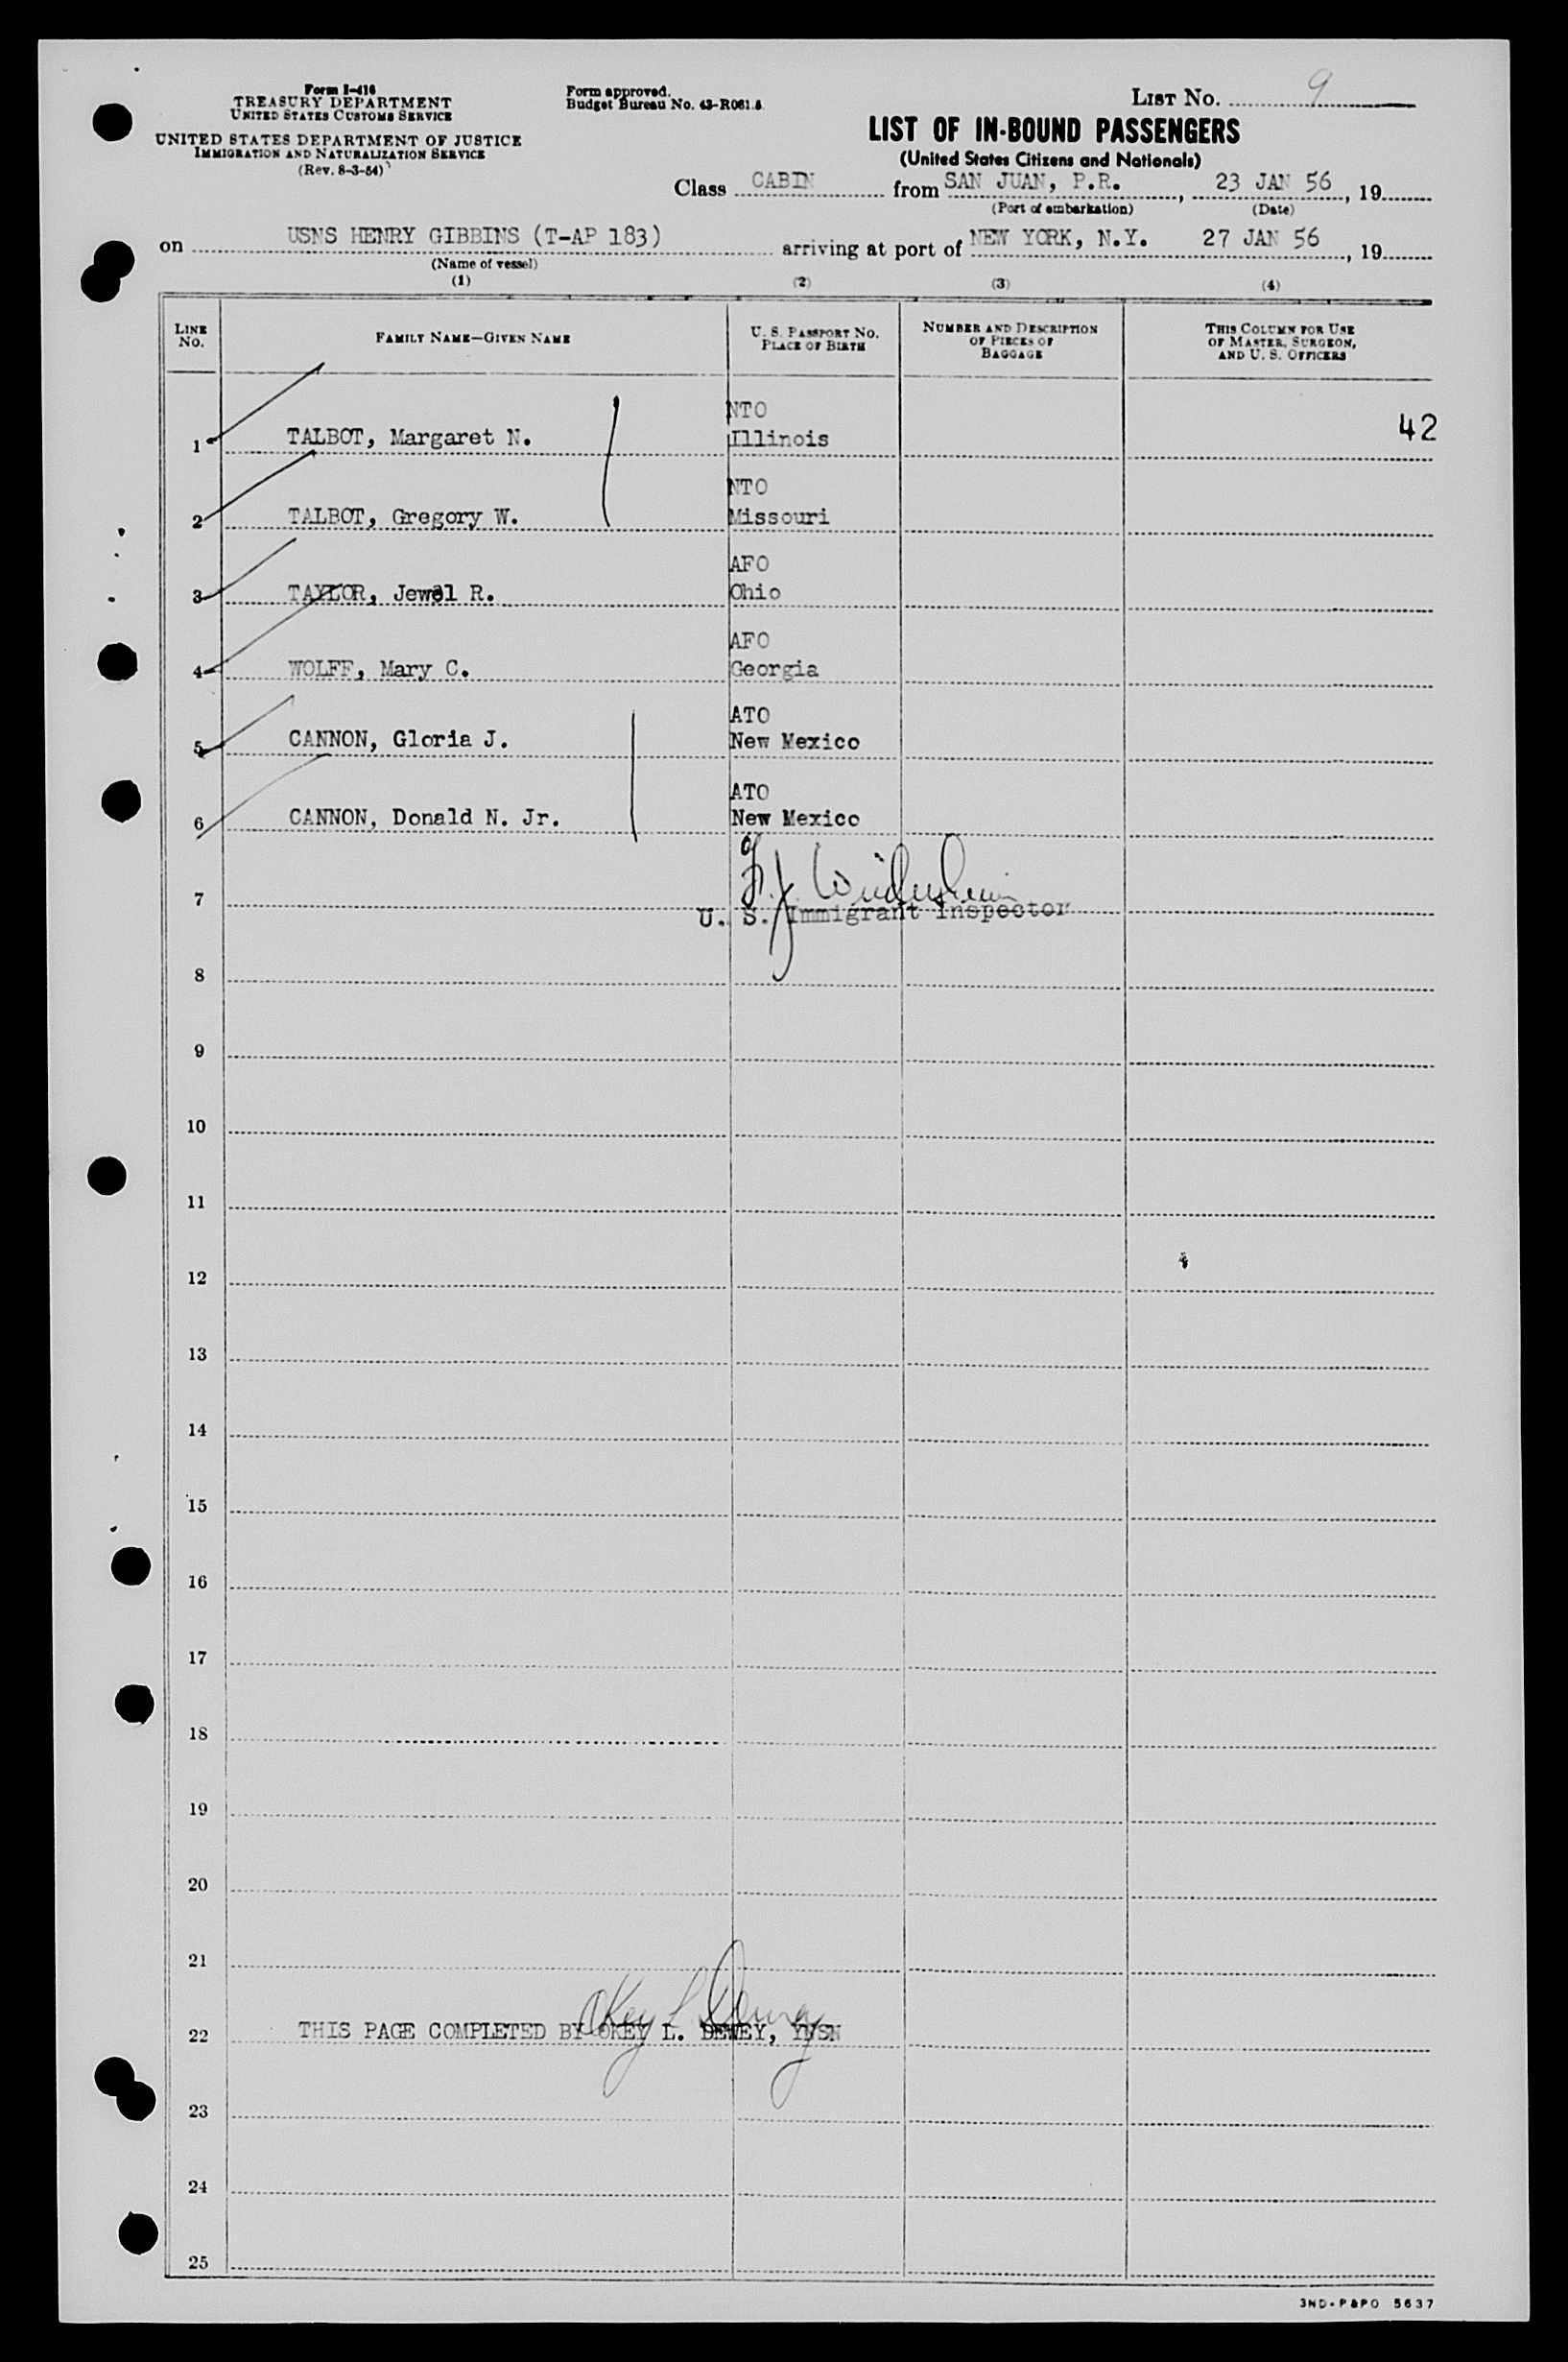 Form I-416
TREASURY DEPARTMENT
UNITED STATES CUSTOMS SERVICE
UNITED STATES DEPARTMENT OF JUSTICE
IMMIGRATION AND NATURALIZATION SERVICE
(Rev. 8-3-54)
Form approved.
Budget Bureau No. 43-R061.5
LIST NO. 9
LIST OF IN-BOUND PASSENGERS
(United States Citizens and Nationals)
Class CABIN from SAN JUAN, P.R., 23 JAN 56, 19
(Port of embarkation) (Date)
on USNS HENRY GIBBINS (T-AP 183) arriving at port of NEW YORK, N.Y. 27 JAN 56, 19
(Name of vessel)
(1) (2) (3) (4)
LINE NO. FAMILY NAME—GIVEN NAME U. S. PASSPORT NO. PLACE OF BIRTH NUMBER AND DESCRIPTION OF PIECES OF BAGGAGE THIS COLUMN FOR USE OF MASTER, SURGEON, AND U. S. OFFICERS
NTO
1 TALBOT, Margaret N. Illinois 42
NTO
2 TALBOT, Gregory W. Missouri
AFO
3 TAYLOR, Jewel R. Ohio
AFO
4 WOLFF, Mary C. Georgia
ATO
5 CANNON, Gloria J. New Mexico
ATO
6 CANNON, Donald N. Jr. New Mexico
7
U. S. Immigrant Inspector
8
9
10
11
12
13
14
15
16
17
18
19
20
21
Okey L Dewey
22 THIS PAGE COMPLETED BY OKEY L. DEWEY, YNSN
23
24
25
3ND-P&PO 5637